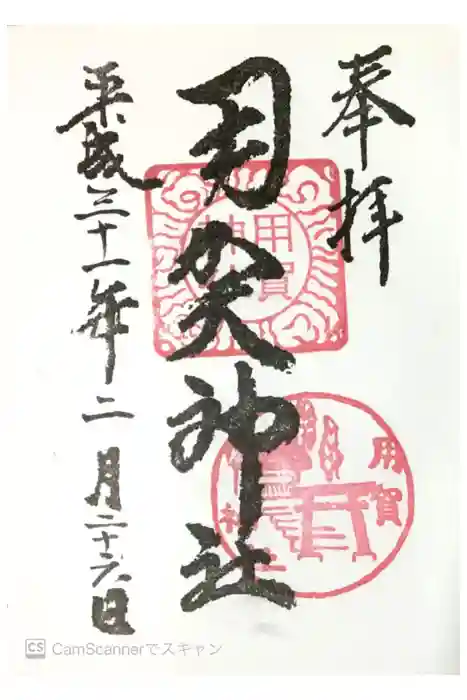 奉拝
用賀神社
平成三十一年二月二十六日
用賀
神社
用賀
神社
CS CamScannerでスキャン